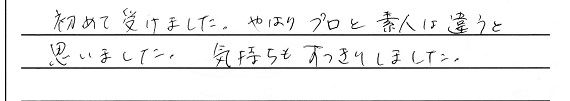 初めて受けました。やはりプロと素人は違うと
思いました。気持ちもすっきりしました。